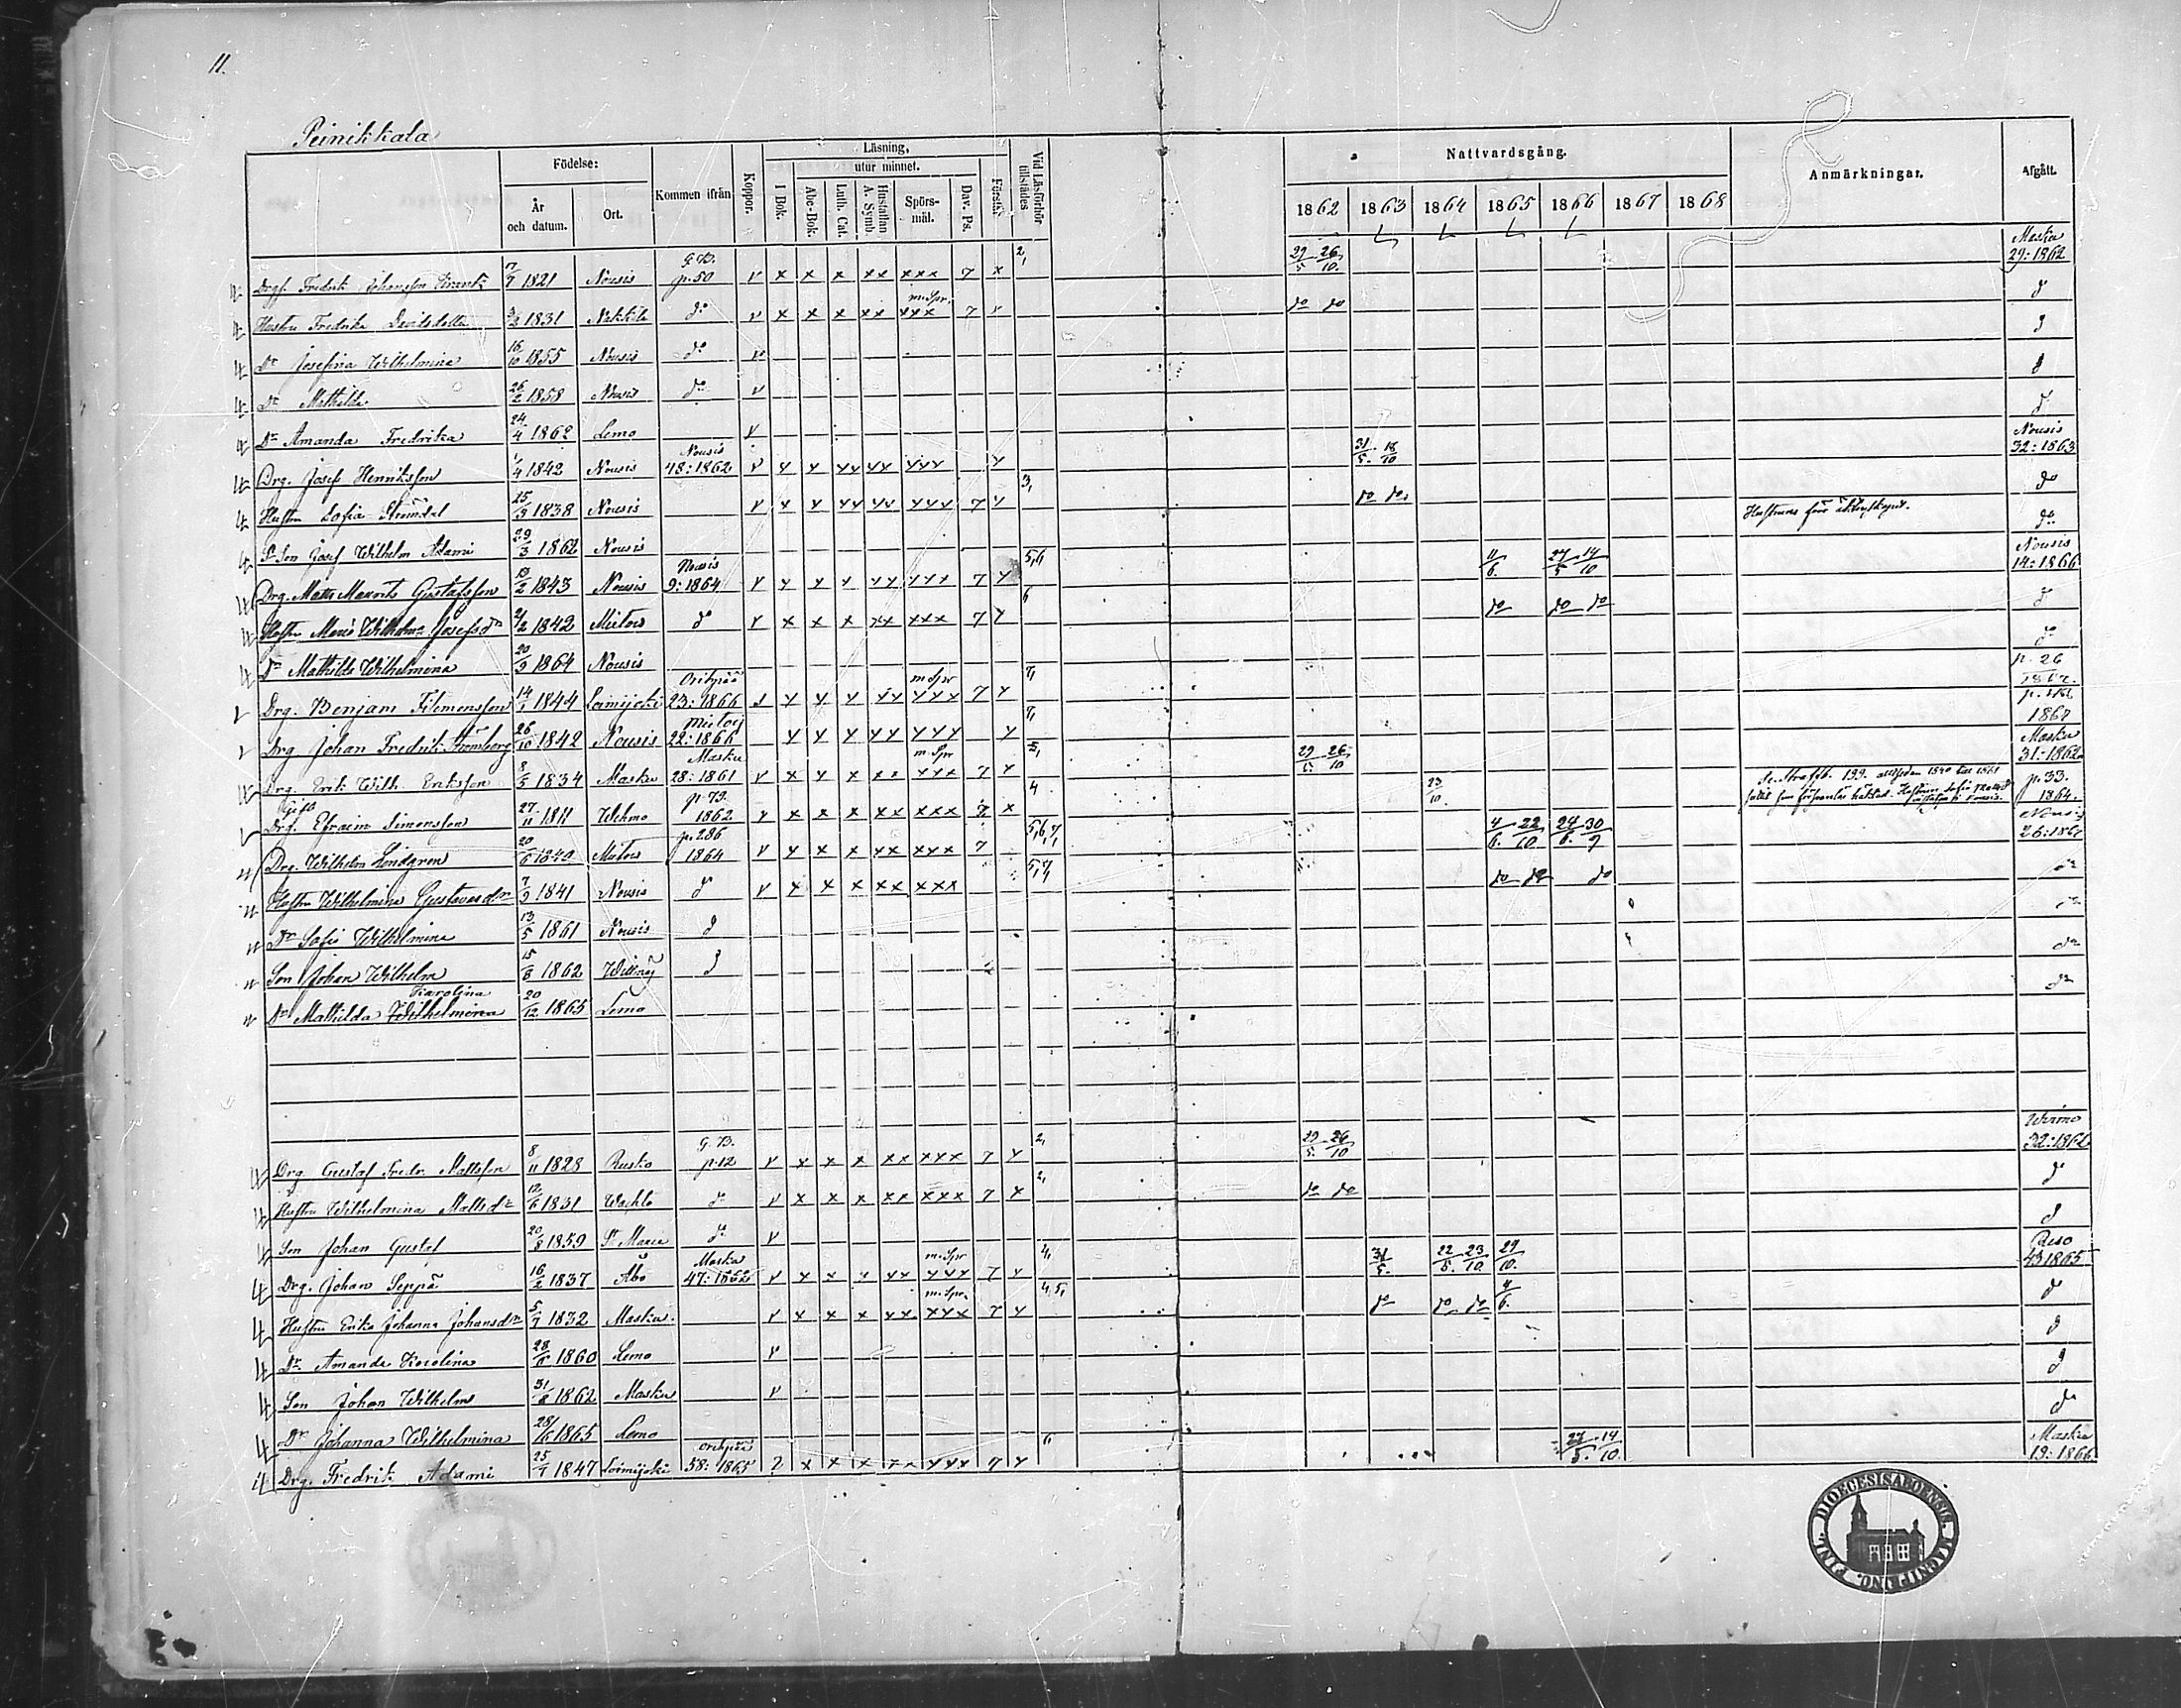 11.
Peinikkala
Födelse:
Kommen ifrån
Koppor.
Läsning,
utur minnet.
Vid Läsförhör tillstädes
Nattvardsgång.
Anmärkningar.
Afgått.
År och datum.
Ort.
I Bok.
Abc-Bok.
Luth. Cat.
Hustaflan A. Symb.
Spörs-mål.
Dav. Ps.
Förstår
1862 1863 1864 1865 1866 1867 1868
Fredrik Johansson 7/7 1821 Nousis G.B. p. 50 v x x x xx xxx 7 x 2, 29/5 26/10 Masku 29: 1862
Hustru Fredrika Davidsdotter 1831 Nakkila do v x x x xx m. Spr. xxx 7 do do d
Dr Josefina Wilhelmina 16/10 1855 Nousis do v d
Dr Mathilda 26/2 1858 Nousis do v d
Dr Amanda Fredrika 24/4 1862 Lemo v d
Drg. Josef Henriksson 1/4 1842 Nousis Nousis 48: 1862 v v v vv vv vvv v 31/5 18/10 Nousis 32: 1863
Hustru Sofia Strömdal 25/9 1838 Nousis v v v vv vv vvv 7 v 3, do do do
Son Josef Wilhelm Adami 29/3 1862 Nousis Hustruns före äktenskapet. do
Drg. Matts Mauritz Gustafsson 13/2 1843 Nousis Nousis 9: 1864 v v v v vv vvv 7 v 5,6 11/6 27/5 14/10 Nousis 14: 1866
Hustru Maria Wilhelmina Josefsdr 2/2 1842 Mietois d v x x x xx xxx 7 v 6 do do do d
Dr Mathilda Wilhelmina 20/9 1864 Nousis do
Drg. Benjam Filemonsson 14/1 1844 Loimijoki Oripää 23: 1866 v v v vv m Spr vvv 7 v 7, p. 26
Drg. Johan Fredrik Strömberg 26/10 1842 Nousis Mietois 22: 1866 v v v vv vvv v 7, 1867
Drg. Erik Wilh. Eriksson 8/5 1834 Masku Masku 28: 1861 v x x x xx m Spr xxx 7 v 29/5 26/10 Masku 31: 1862
Drg. Efraim Simonsson 27/11 1811 Wehmo p. 79. 1862 v x x x xx xxx x 4 23/10. 199. p. 33. 1864.
Drg. Wilhelm Lindgren 20/6 1840 Mietois p. 286 1864 v v x x xx xxx 7 5,6,7, 4/6. 22/10 24/6. 30/9 Nousis
Hustru Wilhelmina Gustavsdr 7/9 1841 Nousis d v x x x xx xxx 5,7, do do do do
Dr Sofia Wilhelmina 13/5 1861 Nousis d do
Son Johan Wilhelm 15/8 1862 d do
Karolina
Dr Mathilda Wilhelmina 20/12 1865 Lemo do
Drg. Gustaf Fredr. Mattsson 8/11 1828 Rusko G.B. p. 12 v x x x xx xxx 7 v 2, 29/5. 26/10 Wirmo 32: 1862
Hustru Wilhelmina Mattsdr 12/6 1831 do v x x x xx xxx 7 x 2, do do d
Son Johan Gustaf 20/8 1859 St Marie do v d
Drg. Johan Seppä 16/2 1837 Åbo Masku 47: 1862 v x x v vv m. Spr vvv 7 v 4, 31/5. 22/5. 23/10. 29/10. Reso 43 1865
Hustru Erika Johanna Johansdr 5/7 1832 Masku. v x x x xx m. Spr. xxx 7 v 4,5, do do do 4/6. d
Dr Amanda Karolina 28/6 1860 Lemo v d
Son Johan Wilhelm 31/8 1862 Masku v d
Dr Johanna Wilhelmina 28/6 1865 Lemo do
Drg. Fredrik Adami 25/7 1847 Loimijoki Oripää 58: 1865 ? x x x xx vxx 7 v 6 27/5. 14/10. Masku 19: 1866